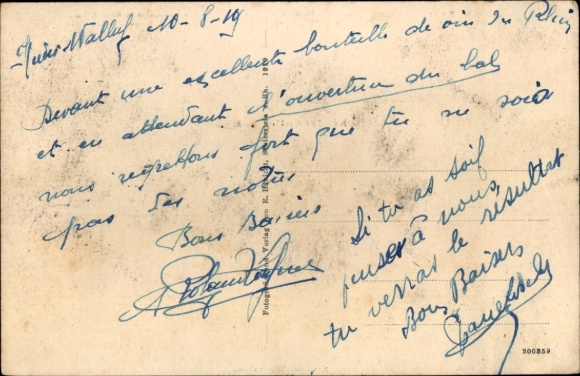 Nieder Walluf 10-8-19
Devant une excellente bouteille de vin du Rhin
et en attendant l'ouverture du bal
nous regrettons fort que tu ne sois
pas des notres
Bons Baisers
Si tu as soif
penses à nous,
tu verras le résultat
Bons Baisers
Fotograf. und Verlag von R.
200859